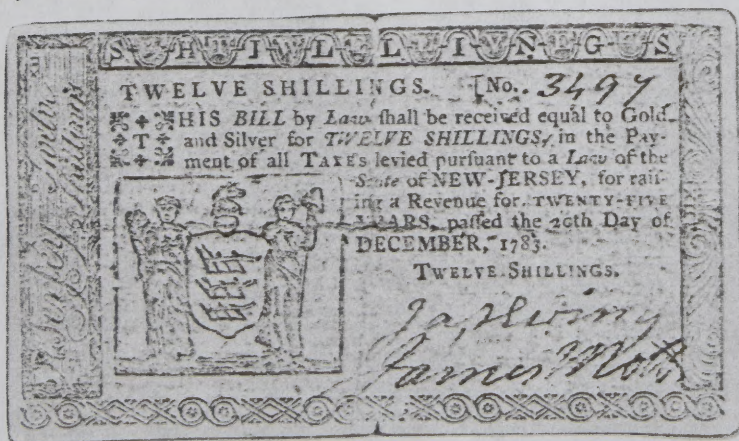 SHILLINGS
TWELVE SHILLINGS. [No. 3497
THIS BILL by Law shall be received equal to Gold
and Silver for TWELVE SHILLINGS, in the Pay-
ment of all TAXES levied pursuant to a Law of the
State of NEW-JERSEY, for rais-
ing a Revenue for TWENTY-FIVE
YEARS, passed the 20th Day of
DECEMBER, 1783.
TWELVE SHILLINGS.
Jas Ewing
James Mott